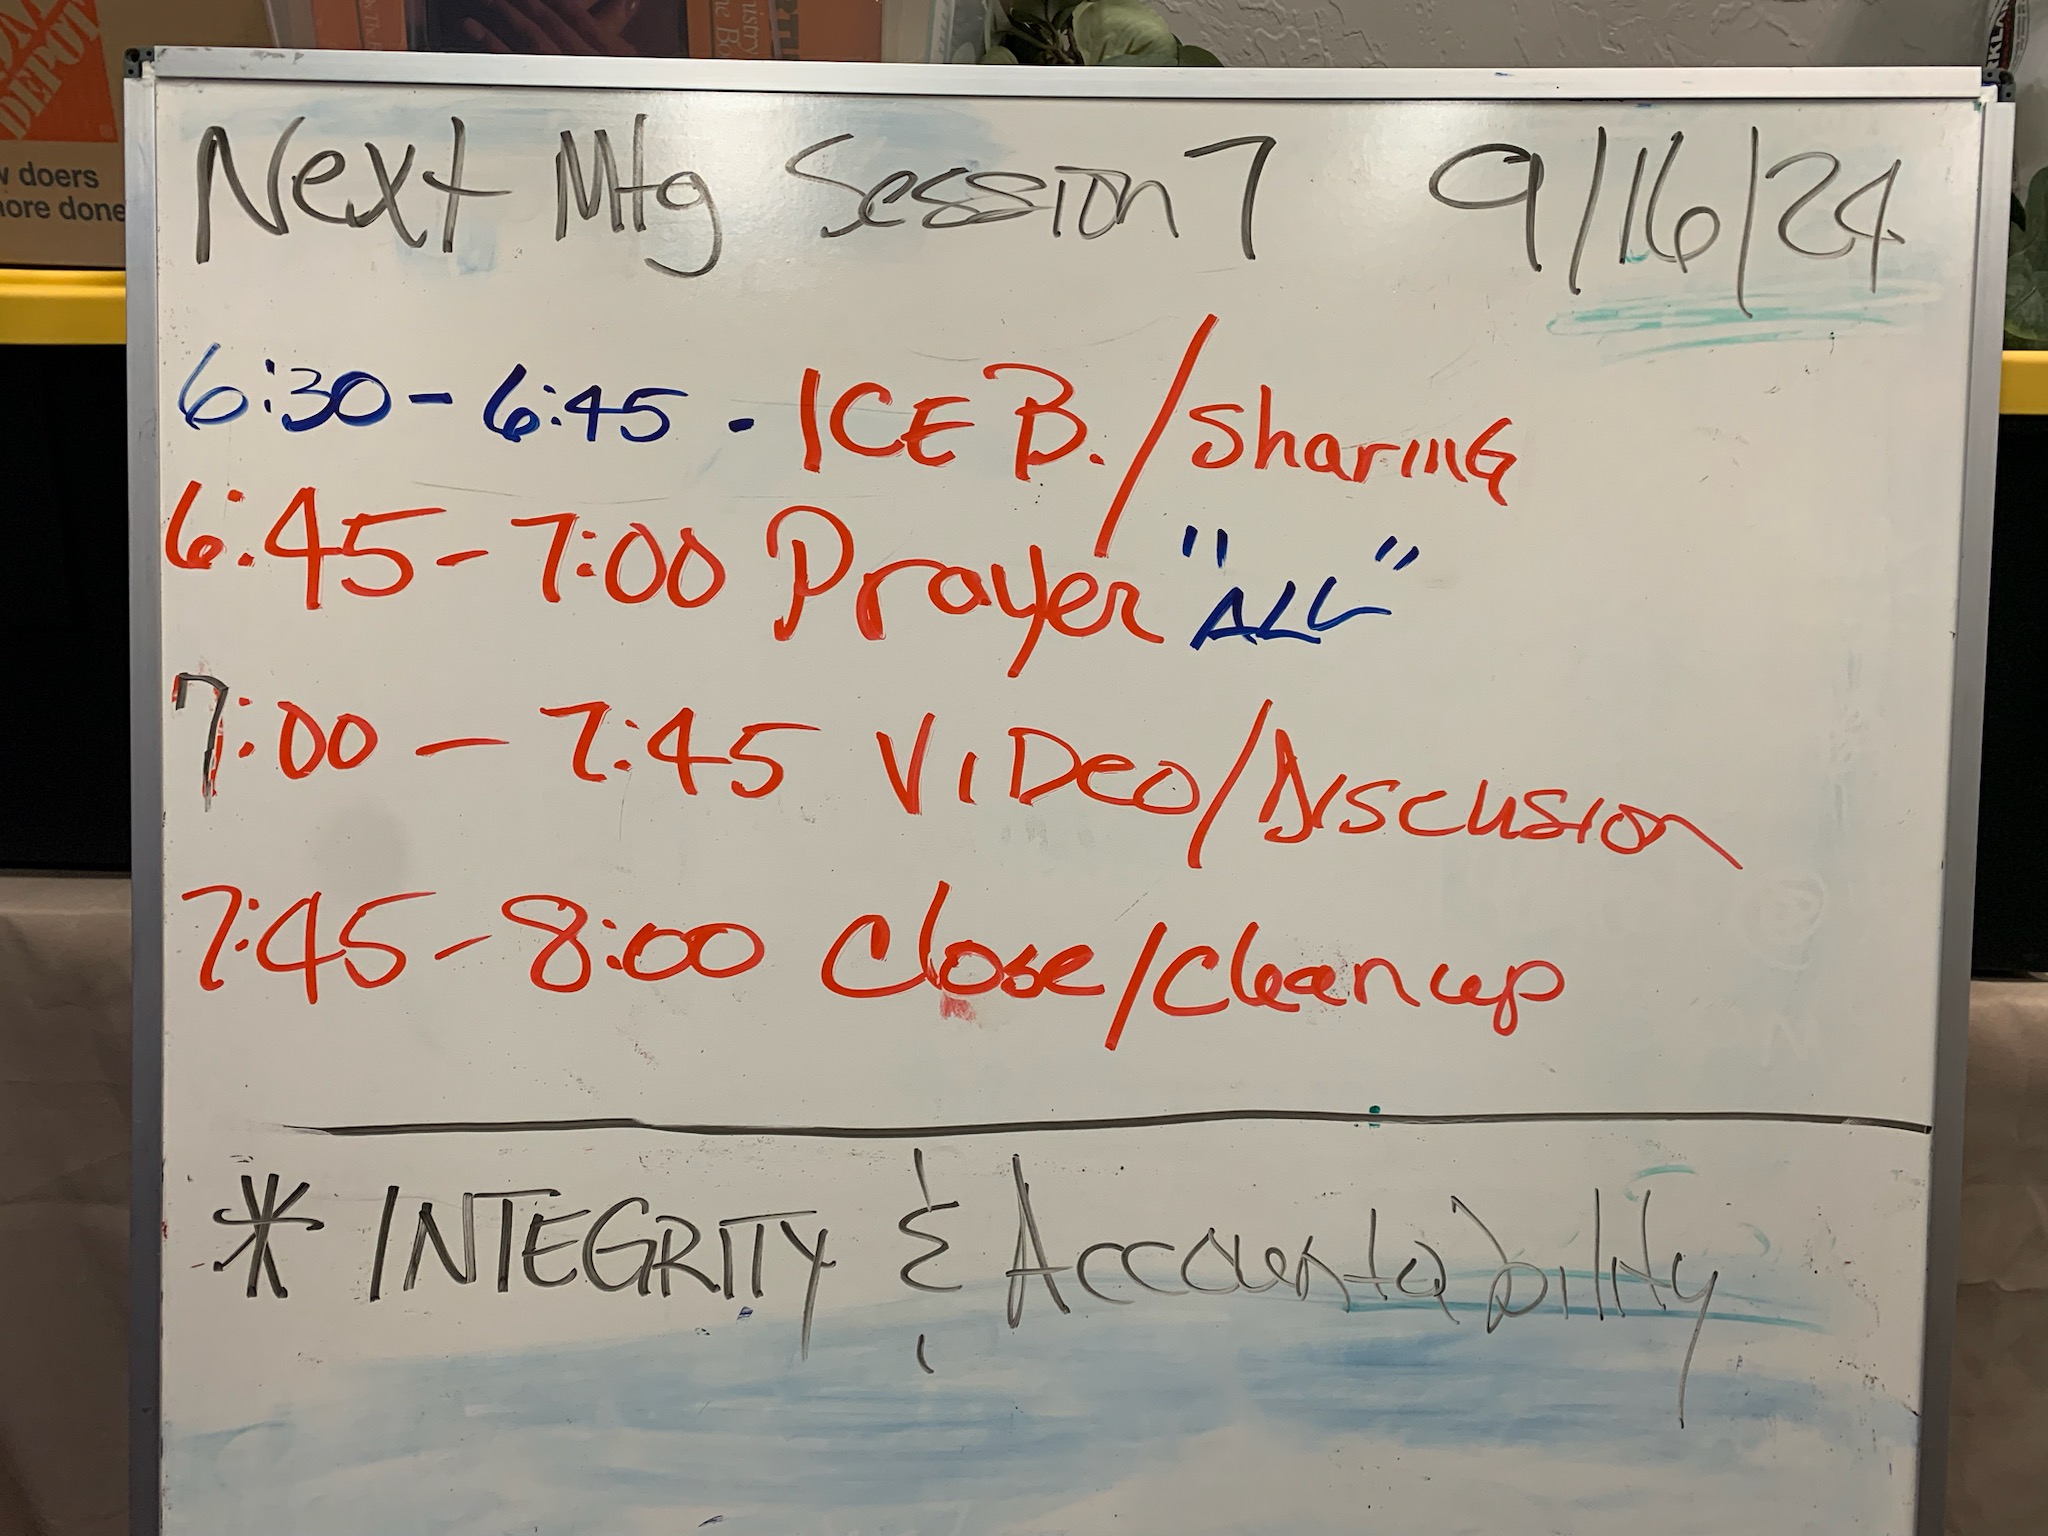 Next Mtg Session 7 9/16/24
6:30 - 6:45 - ICE B. / SharinG
6:45 - 7:00 Prayer "ALL"
7:00 - 7:45 ViDeo/Discusion
7:45 - 8:00 Close/Cleanup
* INTEGRITY & Accountability
DEPOT
doers
done